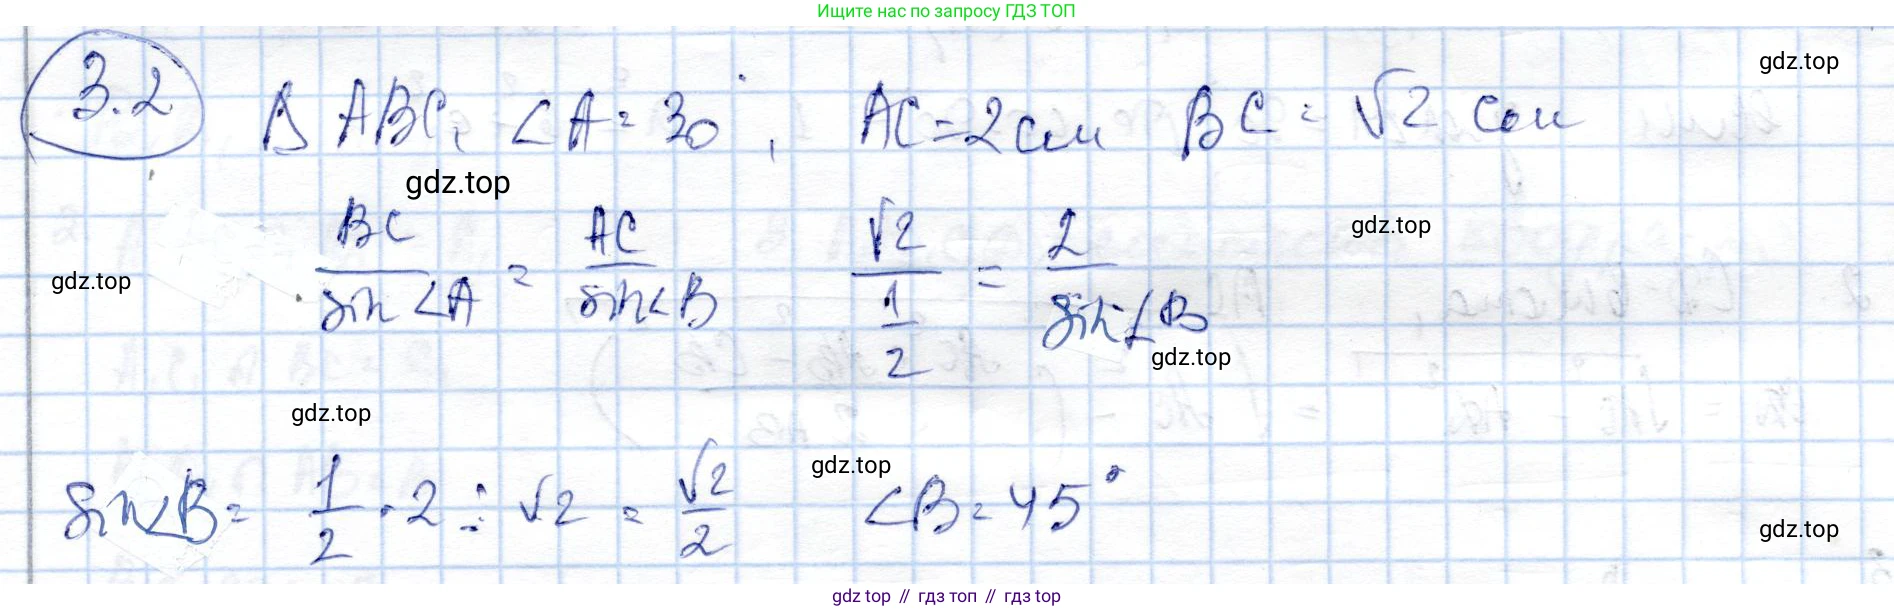 Ищите нас по запросу ГДЗ ТОП
gdz.top
3.2 Δ ABC, ∠A = 30°, AC = 2 см BC = √2 см
gdz.top
gdz.top
gdz.top
BC / sin ∠A = AC / sin ∠B √2 / (1/2) = 2 / sin ∠B
gdz.top
gdz.top
gdz.top
sin ∠B = 1/2 · 2 : √2 = √2/2 ∠B = 45°
gdz.top
gdz top // гдз топ // гдз top